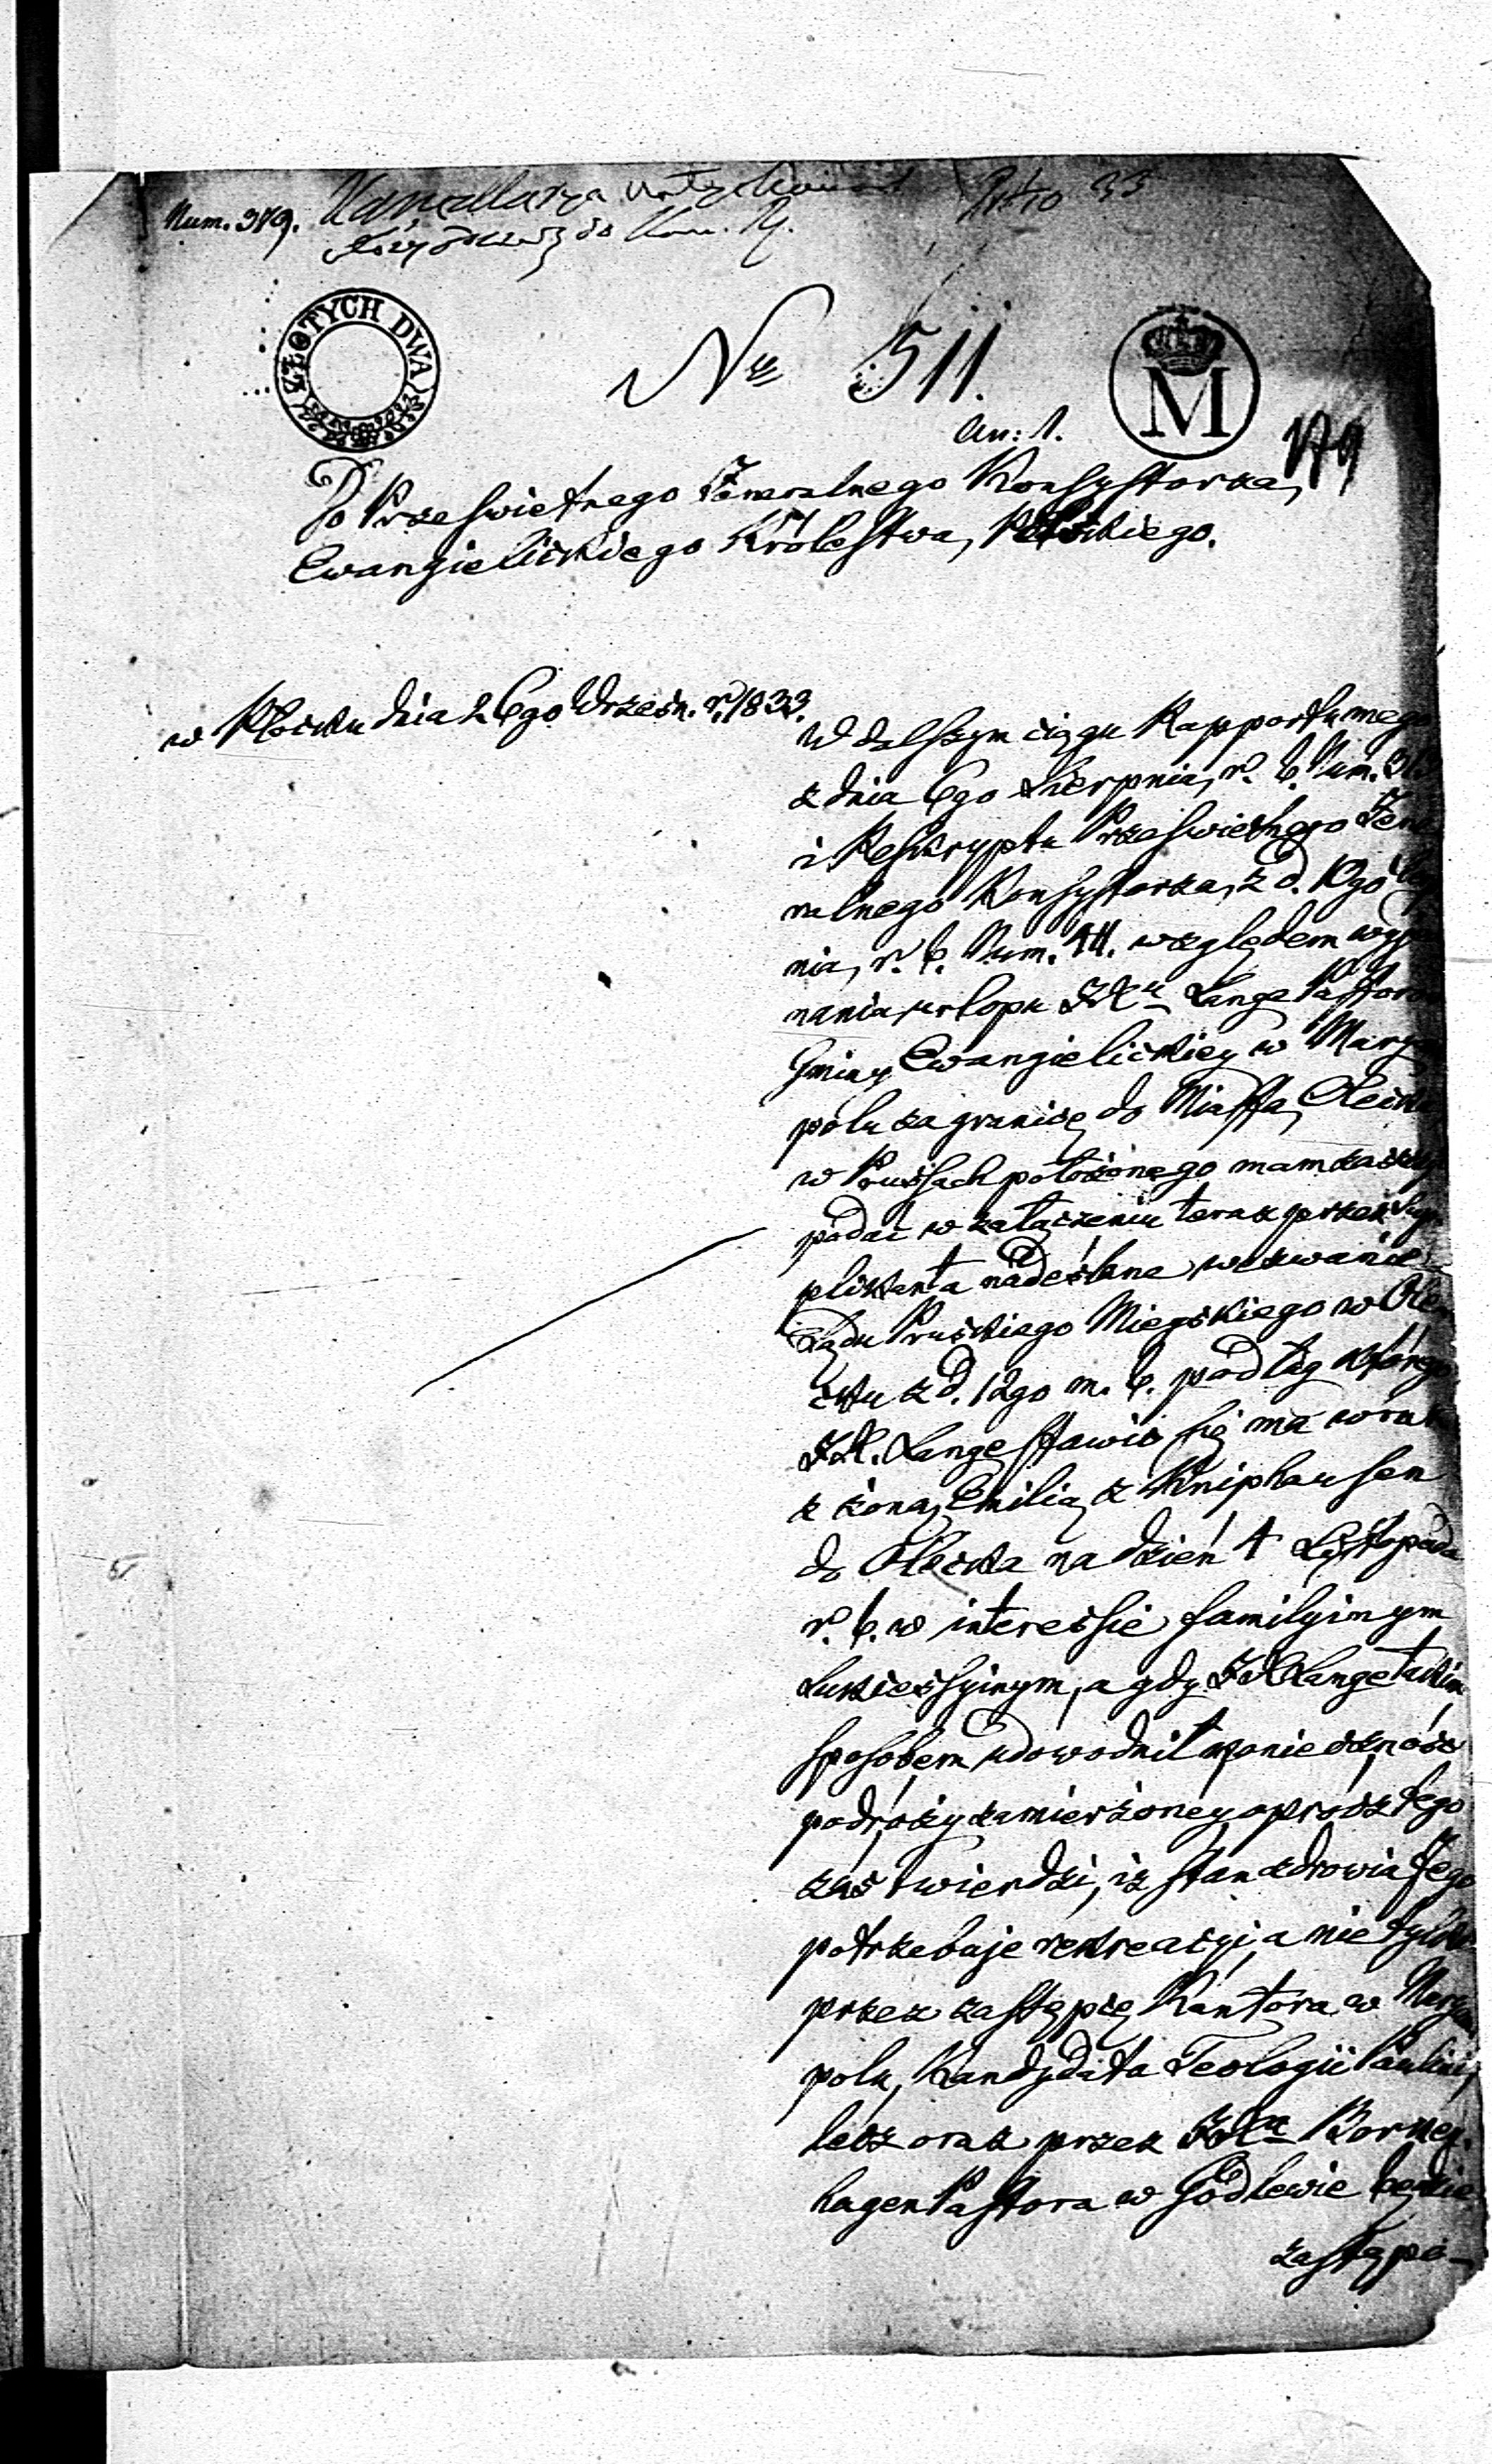 Num. 379. Kancellarya
N<u>ro</u> 511.
ZŁOTYCH DWA
M
An: 1.
179
Do Prześwietnego Jeneralnego Konsystorza,
Ewangielickiego Królestwa, Polskiego.
w Płocku dnia 26go Wrześn. r. 1833.
W dalszym ciągu Rapportu mego
z dnia 6go Sierpnia, r. b. Num.
i Reskryptu Prześwietnego Jene
ralnego Konsystorza, z d. 10go
nia, r. b. Num. 411. względem
nania urlopu Lange Pastora
Gminy Ewangielickiey w Marya
polu za granicę do Miasta, Olecka
w Prussach położonego mam zaszczyt
podać w załączeniu teraz przez Sup
plikanta nadesłane, wezwanie
Sądu Pruskiego Mieyskiego w Ole
cku z d. 12go m. b. podług którego
Lange stawić się ma wraz
z żoną, Emilią z Kniphausen
do Olecka na dzień 4 Listopada
r. b. w interessie familyinym
Sukcessyinym, a gdy Lange takim
sposobem udowodnił konieczność
podróży zamierzoney oprócz tego
zaś twierdzi, iż stan zdrowia Jego
potrzebuje rekreacyi, a nie tylko
przez zastępcę Kantora w Marya
polu, Kandydata Teologii
lecz oraz przez Borney
hagen Pastora w Godlewie będzie
zastąpio-